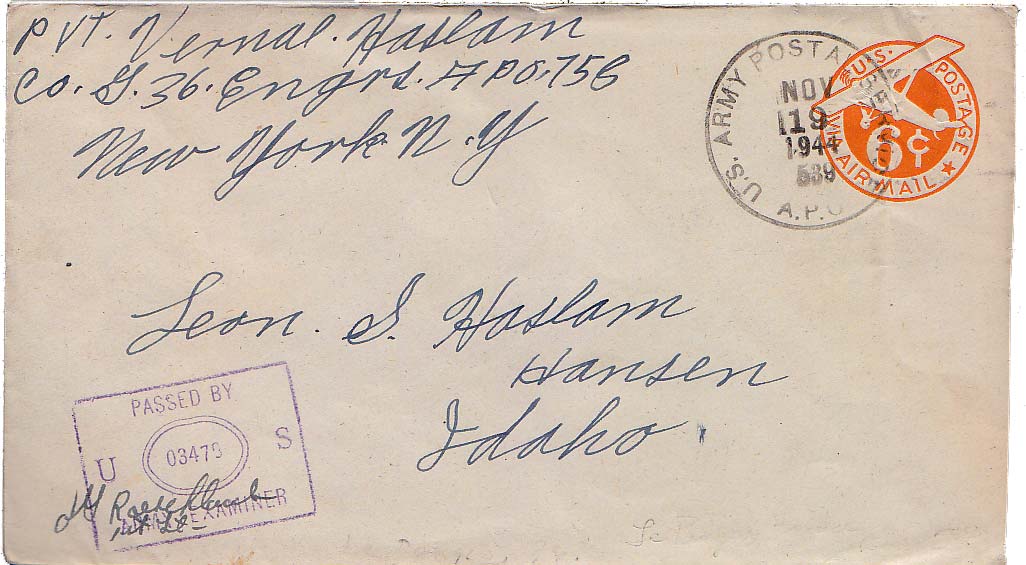 Pvt. Vernal. Haslam
Co. G. 36. Engrs. A P.O. 758
New York. N. Y
U.S. ARMY POSTAL
NOV
19
1944
539
A.P.O
U.S. POSTAGE
6¢
VIA AIR MAIL
Leon. S Haslam
Hansen
Idaho
PASSED BY
U S
03475
ARMY EXAMINER
1st Lt